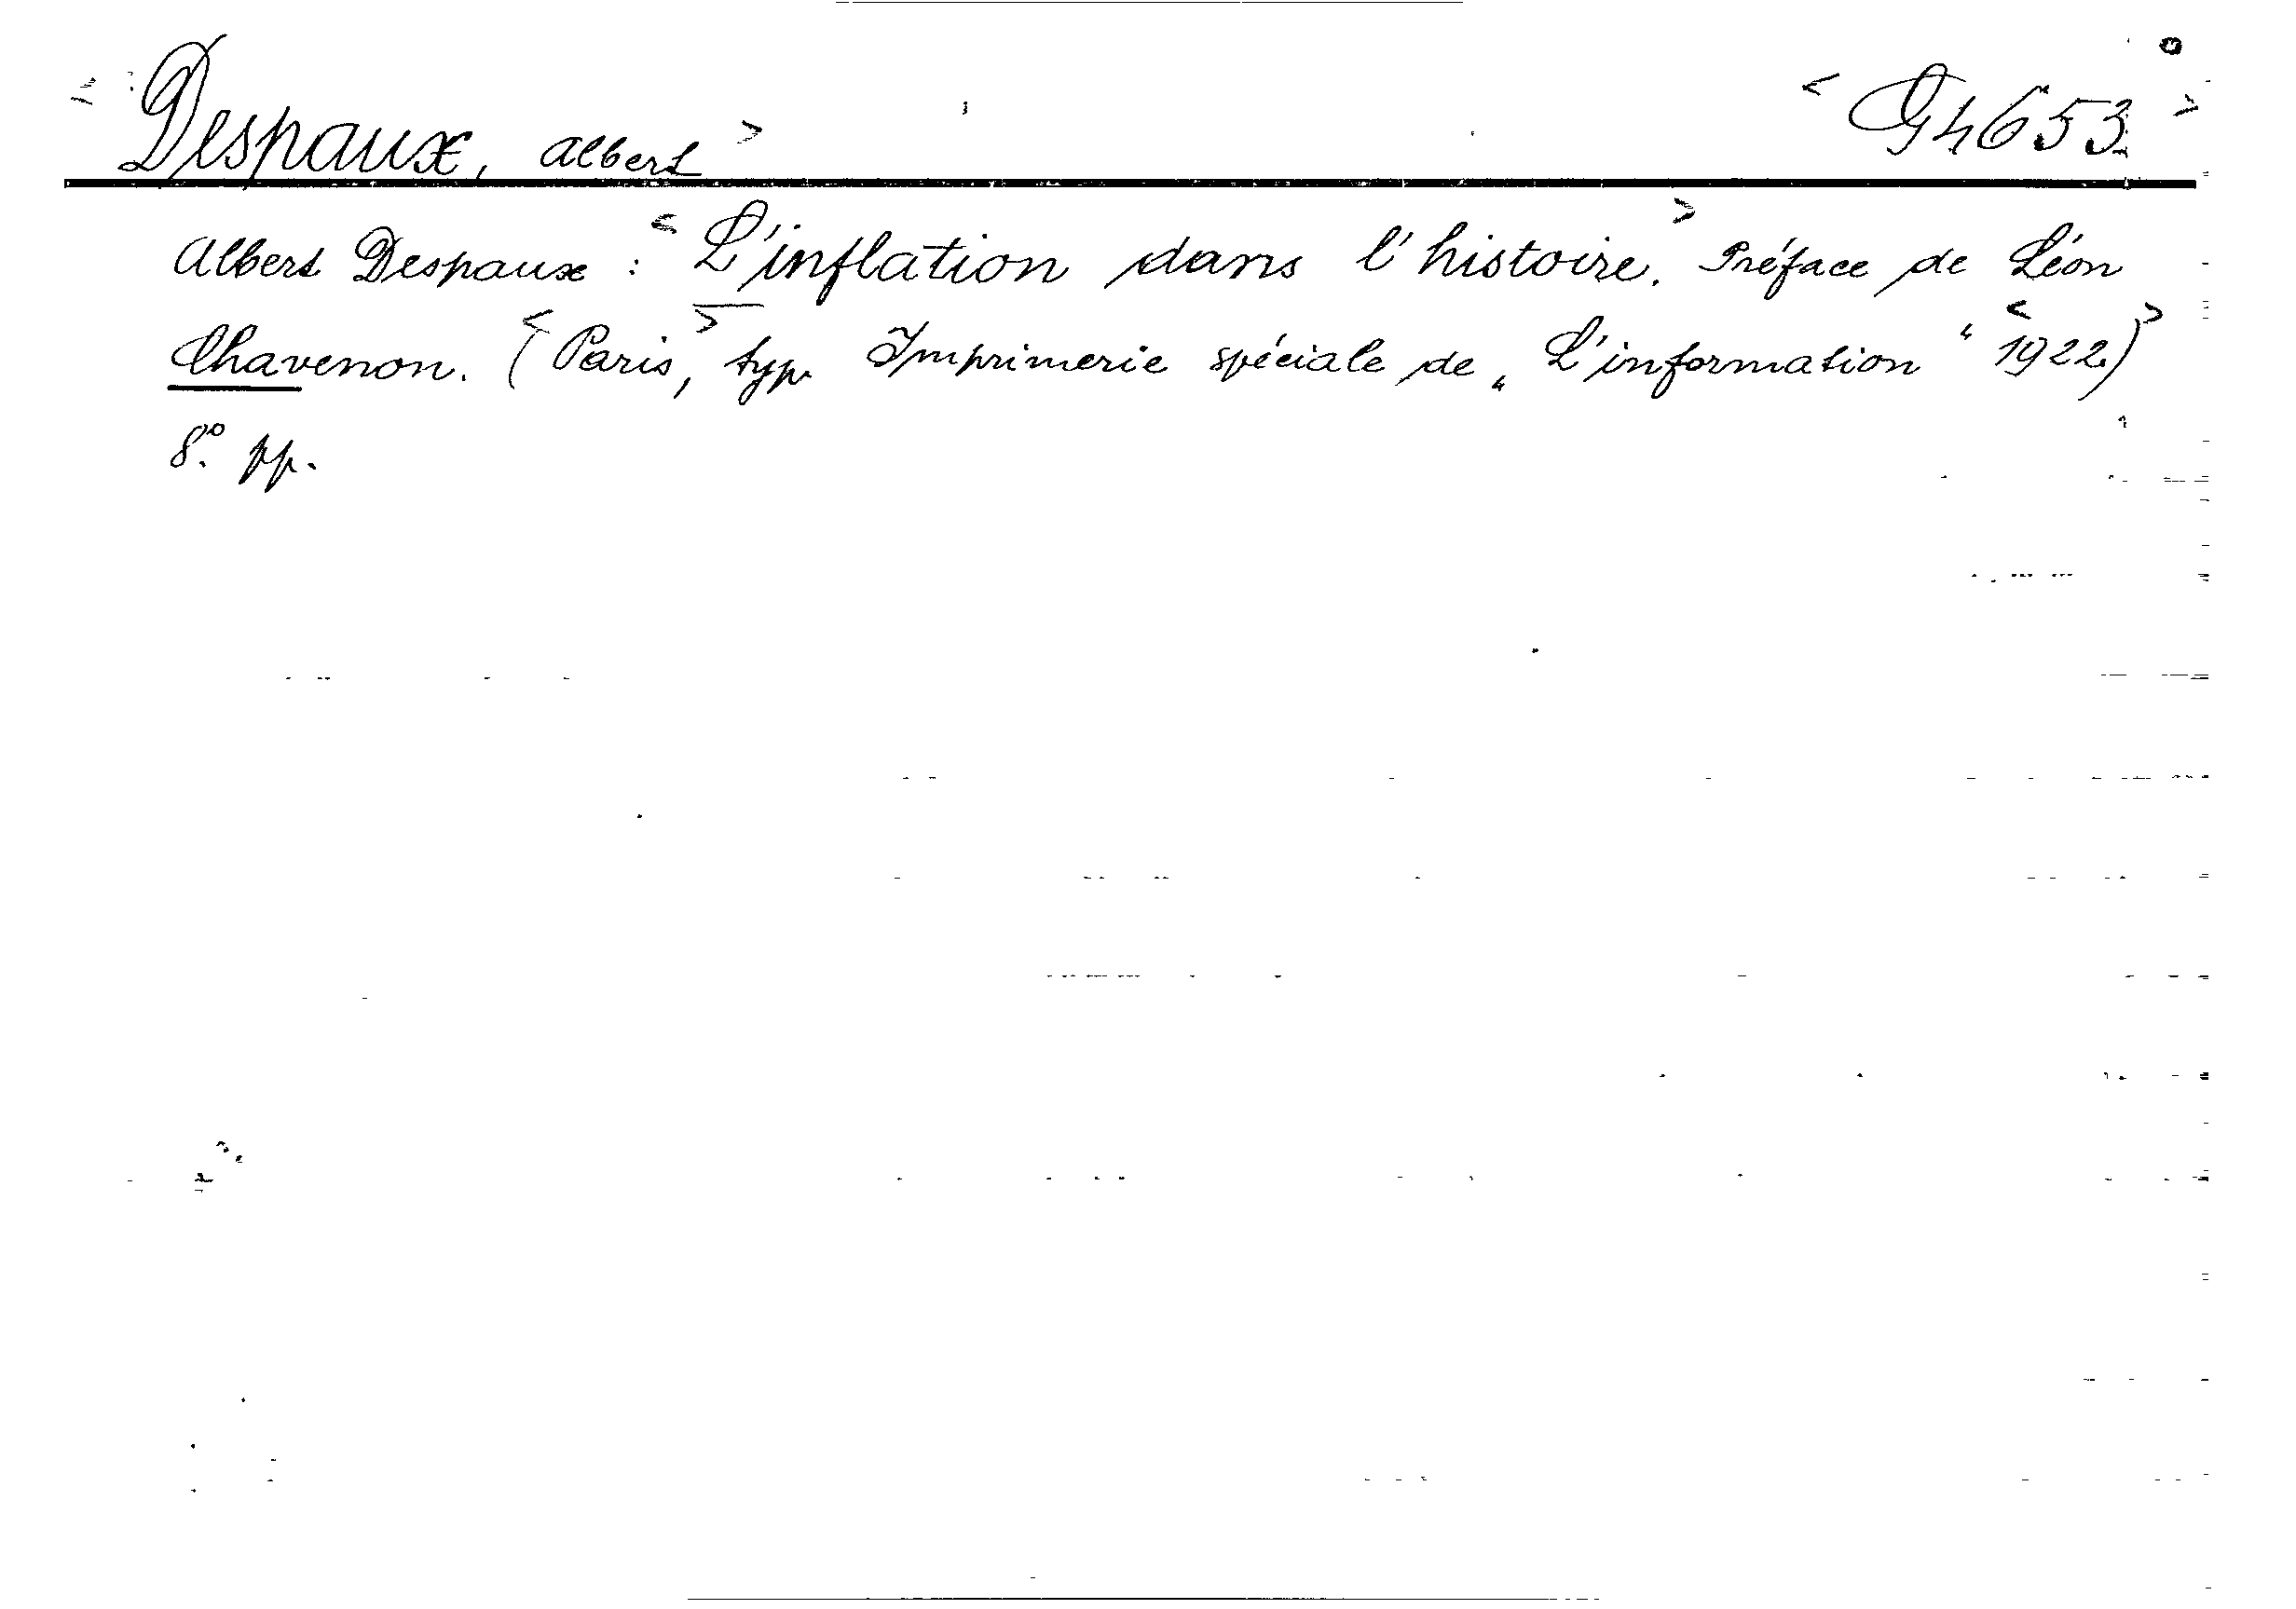 Despaux, Albert> <G4653.>
Albert Despaux: <L'inflation dans l'histoire.> Préface de Léon
Chavenon. <(Paris,> typ. Imprimerie spéciale de „L'information“ <1922.)>
8º. pp.